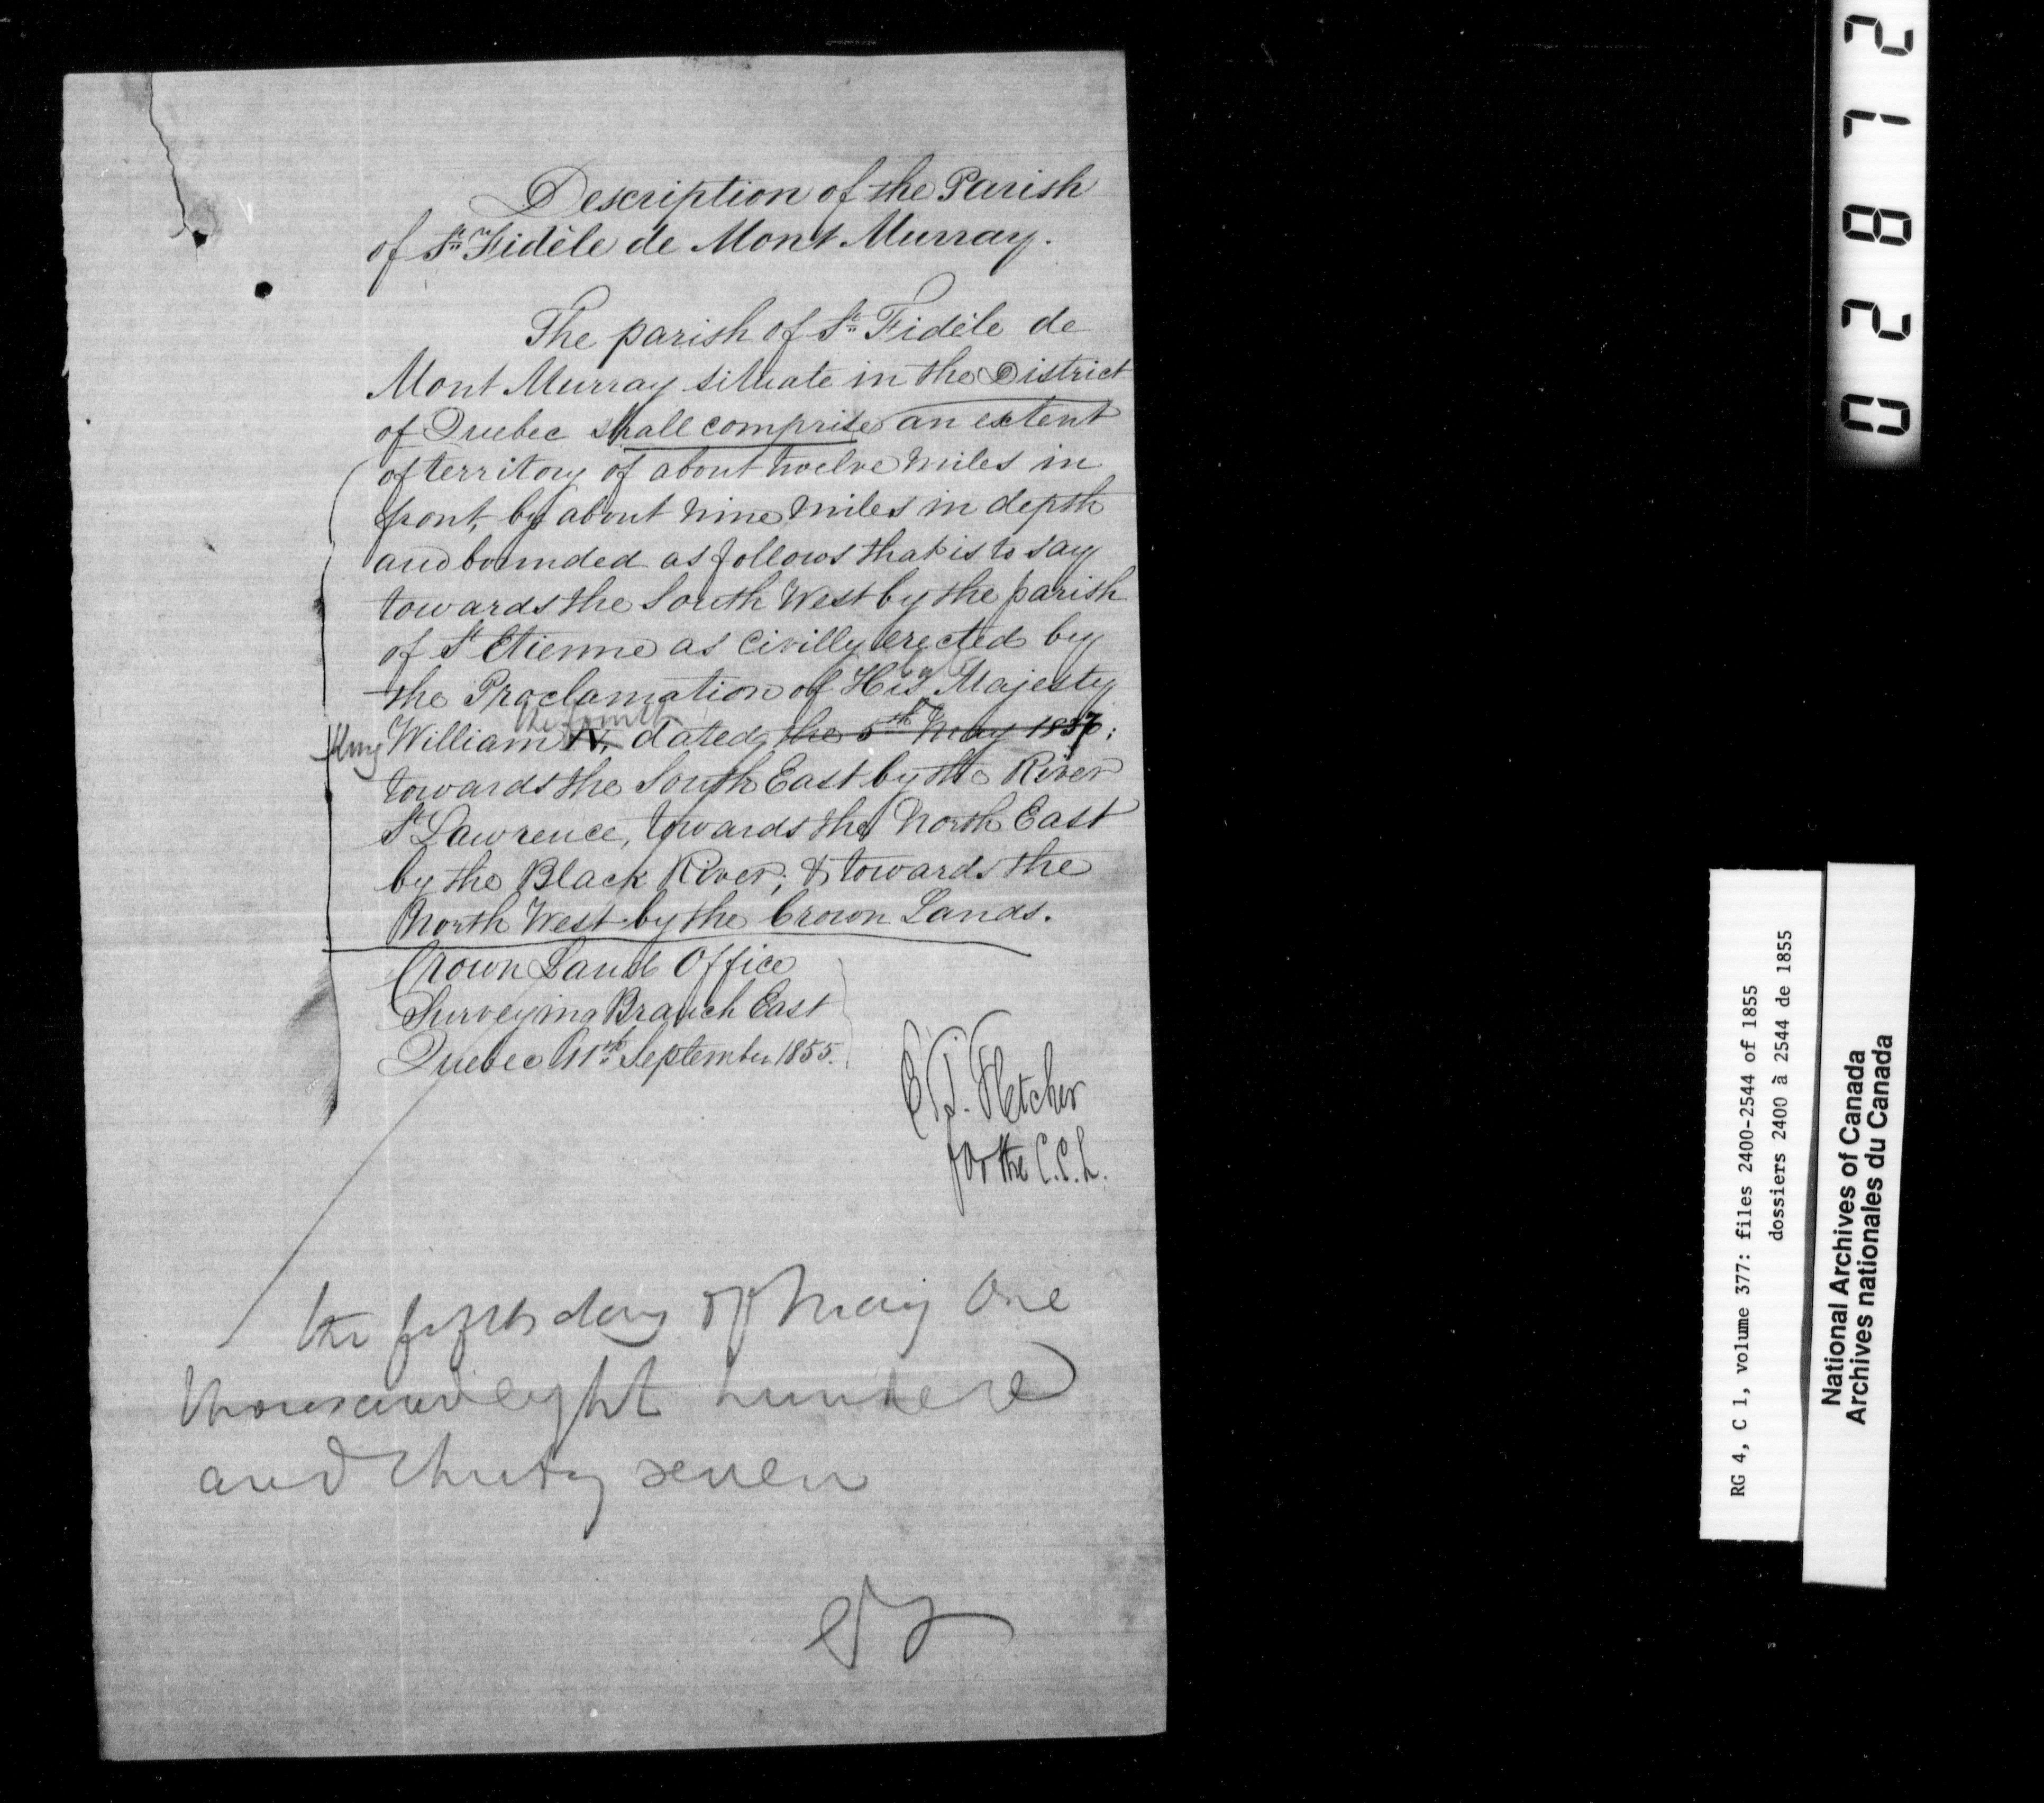 Description of the Parish
of St. Fidèle de Mont Murray.
The parish of St. Fidèle de
Mont Murray situate in the District
of Quebec shall comprise an extent
of territory of about twelve miles in
front, by about nine miles in depth
and bounded as follows that is to say
towards the South West by the parish
of St Etienne as Civilly erected by
the Proclamation of His Majesty
the fourth
King William IV, dated the 5th May 1837;
towards the South East by the River
St Lawrence, towards the North East
by the Black River; & towards the
North West by the Crown Lands.
Crown Land Office
Surveying Branch East
Quebec 11th September 1855.
E. T. Fletcher
for the C.C.L.
the fifth day of May One
thousand eight hundred
and thirty seven
02872
RG 4, C 1, volume 377: files 2400-2544 of 1855
dossiers 2400 à 2544 de 1855
National Archives of Canada
Archives nationales du Canada